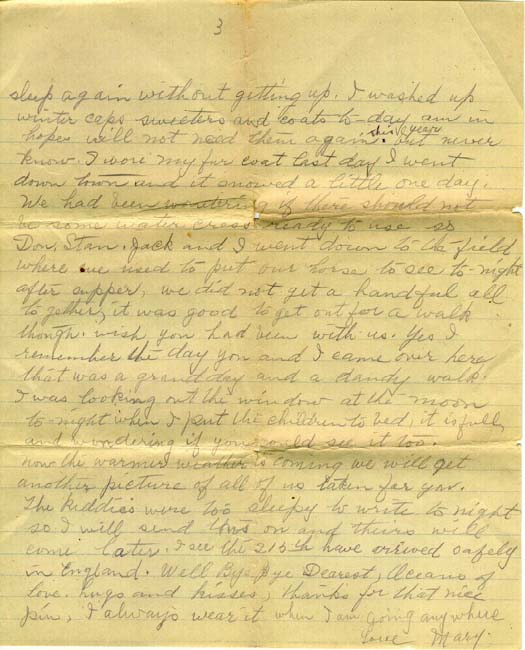 3
sleep again without getting up. I washed up
winter caps sweeters and coats to-day am in
hopes will not need them again this year but never
know. I wore my fur coat last day I went
down town and it snowed a little one day.
We had been wondering if there should not
be some water cress ready to use so
Don, Stan, Jack and I went down to the field
where we used to put our horse to see to-night
after supper, we did not get a handful all
together, it was good to get out for a walk
though. wish you had been with us. Yes I
remember the day you and I came over here
that was a grand day and a dandy walk.
I was looking out the window at the moon
to-night when I put the children to bed, it is full,
and wondering if you could see it too.
now the warmer weather is coming we will get
another picture of all of us taken for you.
The kiddies were too sleepy to write to night
so I will send this on and theirs will
come later. I see the 215th have arrived safely
in England. Well Bye Bye Dearest, Oceans of
love. hugs and kisses, thanks for that nice
pin, I always wear it when I am going anywhere
Love Mary.